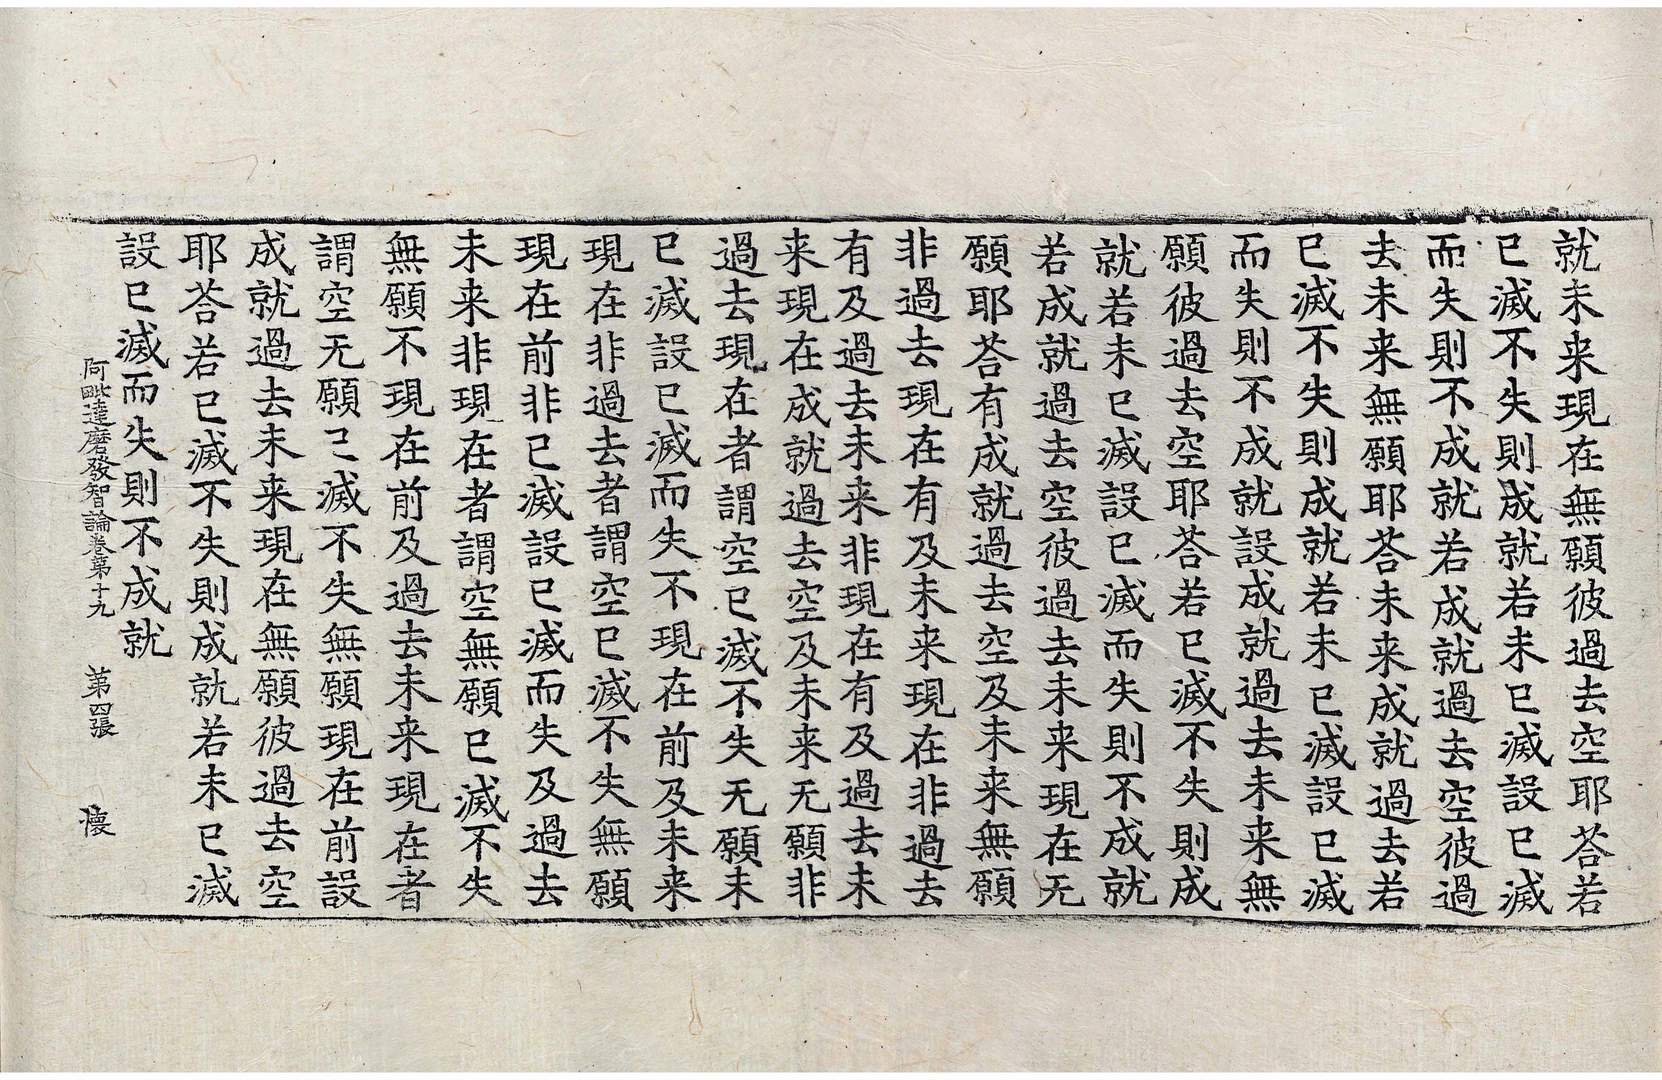 就未来現在無願彼過去空耶荅若
已滅不失則成就若未已滅設已滅
而失則不成就若成就過去空彼過
去未来無願耶荅未来成就過去若
已滅不失則成就若未已滅設已滅
而失則不成就設成就過去未来無
願彼過去空耶荅若已滅不失則成
就若未已滅設已滅而失則不成就
若成就過去空彼過去未来現在无
願耶荅有成就過去空及未来無願
非過去現在有及未来現在非過去
有及過去未来非現在有及過去未
来現在成就過去空及未来无願非
過去現在者謂空已滅不失无願未
已滅設已滅而失不現在前及未来
現在非過去者謂空已滅不失無願
現在前非已滅設已滅而失及過去
未来非現在者謂空無願已滅不失
無願不現在前及過去未来現在者
謂空无願已滅不失無願現在前設
成就過去未来現在無願彼過去空
耶荅若已滅不失則成就若未已滅
設已滅而失則不成就
阿毗達磨發智論卷第十九 第四張 懷